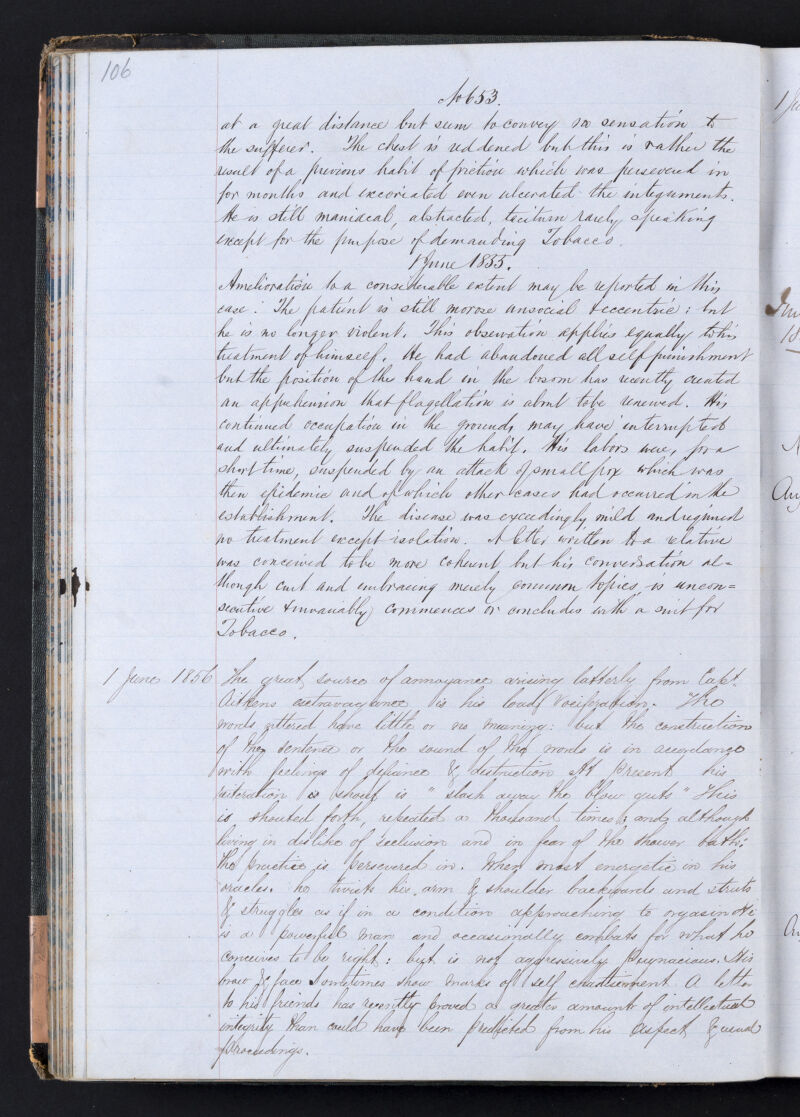 106
No 653.
at a great distance but seem to convey no sensation to
the sufferer. The chest is reddened but this is rather the
result of a previous habit of friction which was persevered in
for months and excoriated even ulcerated the integuments.
He is still maniacal, abstracted, taciturn rarely speaking
except for the purpose of demanding Tobacco.
1 June 1855.
Amelioration to a considerable extent may be reported in this
case: The patient is still morose unsocial & eccentric; but
he is no longer violent. This observation applies equally to his
treatment of himself. He had abandoned all self punishment
but the position of the hand in the bosom has recently created
an apprehension that flagellation is about to be renewed. His
continued occupation in the grounds may have interrupted
and ultimately suspended the habit. His labors were, for a
short time, suspended by an attack of small pox which was
then epidemic and of which other cases had occurred in the
establishment. The disease was exceedingly mild and required
no treatment except isolation. A letter written to a relative
was conceived to be more coherent but his conversation al=
though curt and embracing merely common topics is uncon=
secutive & invariably commences or concludes with a suit for
Tobacco.
1 June 1856 The great source of annoyance arising latterly from Capt.
Aitkens extravagance is his loud vociferation. The
words uttered have little or no meaning: but the construction
of the sentence or the sound of the words is in accordance
with feelings of defiance & destruction At present his
iteration is "slash away the blow guts" This
is shouted forth, repeated a thousand times; and although
living in dislike of seclusion and in fear of the shower bath;
the practice is persevered in. When most energetic in his
oracles. he twists his arm & shoulder backwards and struts
& struggles as if in a condition approaching to orgasm He
is a powerful man and occasionally combats for what he
conceives to be right: but is not aggressively pugnacious. His
brow & face sometimes show marks of self chastisement. A letter
to his friends has recently proved a greater amount of intellectual
integrity than could have been predicted from his aspect & usual
proceedings.